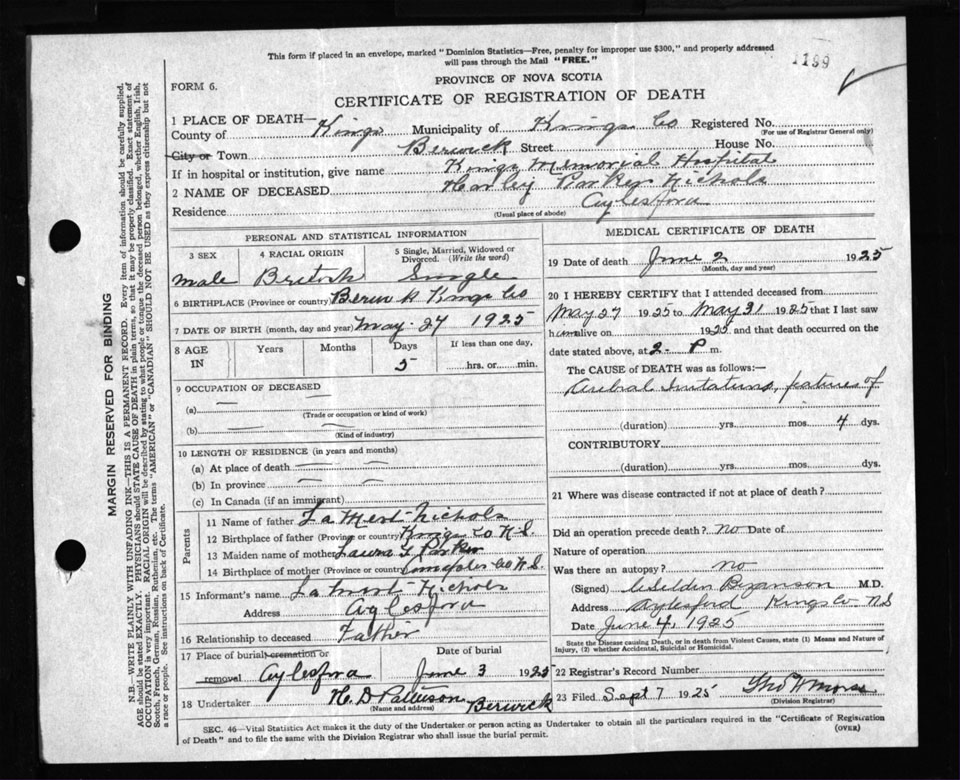 This form if placed in an envelope, marked "Dominion Statistics—Free, penalty for improper use $300," and properly addressed
will pass through the Mail "FREE."
1199
FORM 6.
PROVINCE OF NOVA SCOTIA
CERTIFICATE OF REGISTRATION OF DEATH
1 PLACE OF DEATH—
County of Kings Municipality of Kings Co Registered No.
(For use of Registrar General only)
City or Town Berwick Street House No.
If in hospital or institution, give name Kings Memorial Hospital
2 NAME OF DECEASED Harley Parker Nichols
Residence Aylesford
(Usual place of abode)
PERSONAL AND STATISTICAL INFORMATION
3 SEX 4 RACIAL ORIGIN 5 Single, Married, Widowed or Divorced. (Write the word)
male British Single
6 BIRTHPLACE (Province or country) Berwick Kings Co
7 DATE OF BIRTH (month, day and year) May-27 1925
8 AGE IN Years Months Days If less than one day,
5 hrs. or min.
9 OCCUPATION OF DECEASED
(a) — —
(Trade or occupation or kind of work)
(b) — —
(Kind of industry)
10 LENGTH OF RESIDENCE (in years and months)
(a) At place of death
(b) In province
(c) In Canada (if an immigrant)
Parents
11 Name of father LaMert Nichols
12 Birthplace of father (Province or country) Kings Co N.S.
13 Maiden name of mother Laura Parker
14 Birthplace of mother (Province or country) Co N.S.
15 Informant's name Nichols
Address Aylesford
16 Relationship to deceased Father
17 Place of burial cremation or removal Aylesford
Date of burial June 3 1925
18 Undertaker H. D Pattison Berwick
(Name and address)
MEDICAL CERTIFICATE OF DEATH
19 Date of death June 2 1925
(Month, day and year)
20 I HEREBY CERTIFY that I attended deceased from
May 27 1925 to May 31 1925 that I last saw
him alive on 1925 and that death occurred on
date stated above, at 2- P m.
The CAUSE of DEATH was as follows:—
of
(duration) yrs. mos. 4 dys.
CONTRIBUTORY
(duration) yrs. mos. dys.
21 Where was disease contracted if not at place of death?
Did an operation precede death? no Date of
Nature of operation
Was there an autopsy? no
(Signed) M.D.
Address Aylesford Kings Co. N.S
Date June 4, 1925
State the Disease causing Death, or in death from Violent Causes, state (1) Means and Nature of
Injury, (2) whether Accidental, Suicidal or Homicidal.
22 Registrar's Record Number
23 Filed Sept 7 1925 Morse
(Division Registrar)
SEC. 46—Vital Statistics Act makes it the duty of the Undertaker or person acting as Undertaker to obtain all the particulars required in the "Certificate of Registration
of Death" and to file the same with the Division Registrar who shall issue the burial permit.
(OVER)
MARGIN RESERVED FOR BINDING
N.B.—WRITE PLAINLY WITH UNFADING INK—THIS IS A PERMANENT RECORD. Every item of information should be carefully supplied.
AGE should be stated EXACTLY. PHYSICIANS should STATE CAUSE OF DEATH in plain terms, so that it may be properly classified. Exact statement of
OCCUPATION is very important. RACIAL ORIGIN will be described by stating to what people or tongue the deceased person belonged, whether English, Irish,
Scotch, French, German, Russian, Ruthenian, etc. The terms "AMERICAN" or "CANADIAN" SHOULD NOT BE USED as they express citizenship but not
a race or people. See instructions on back of Certificate.